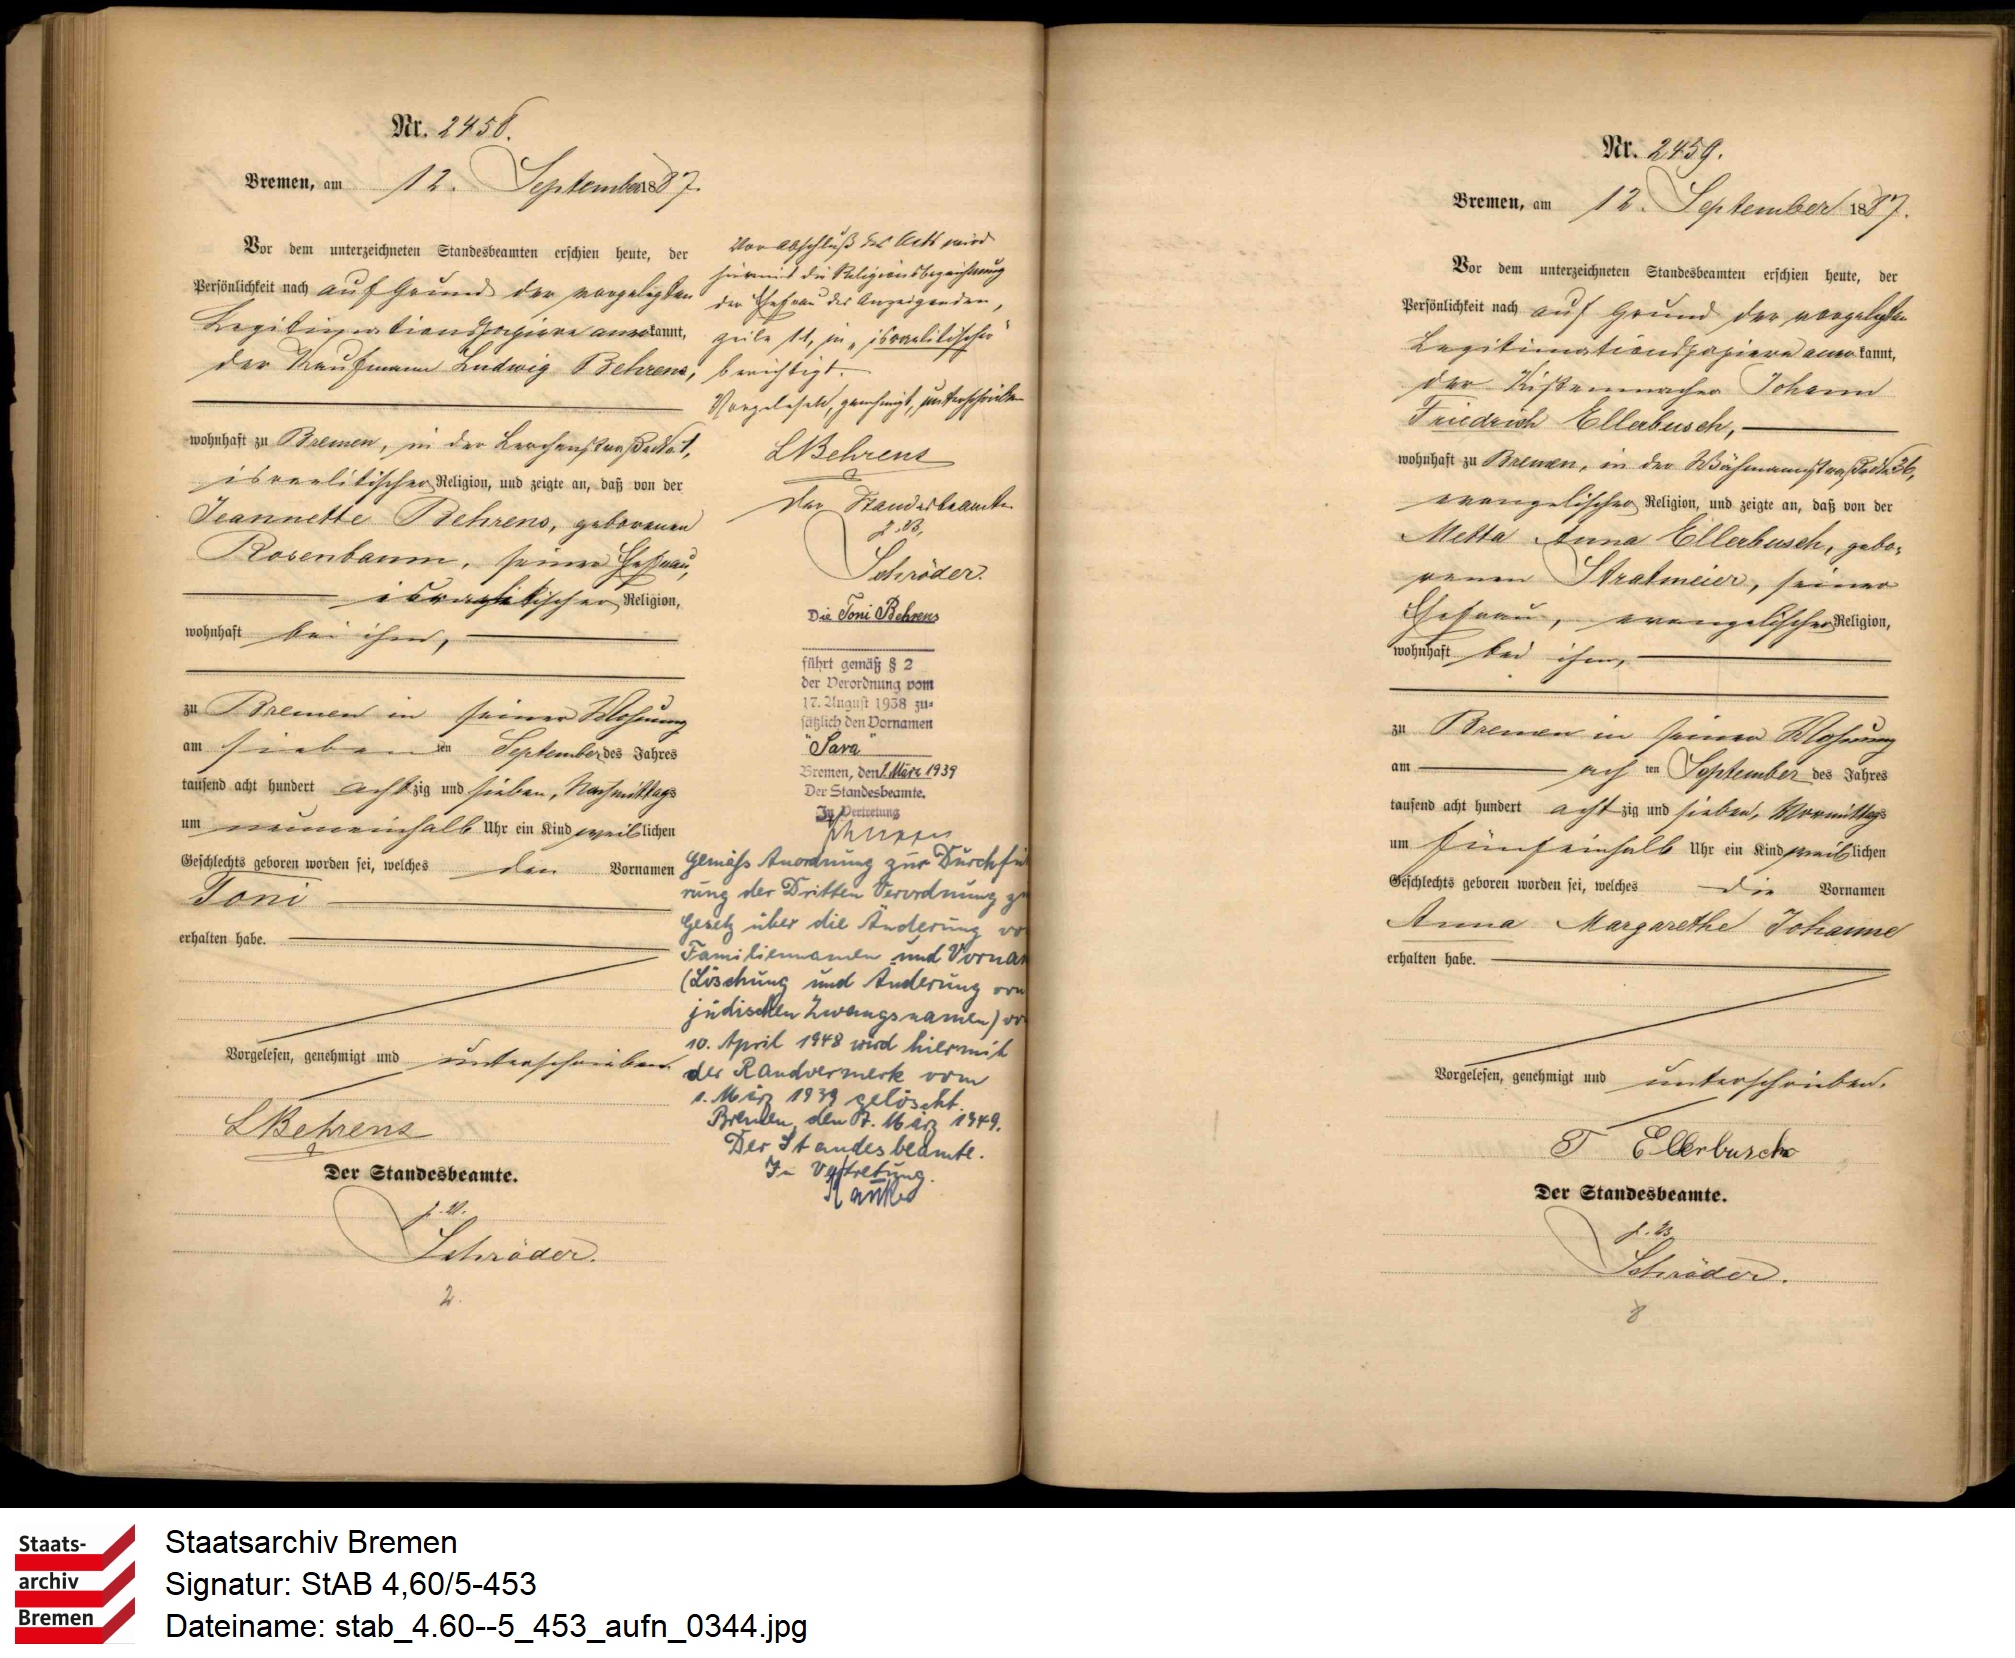 Nr. 2458.
Bremen, am 12. September 1887.
Vor dem unterzeichneten Standesbeamten erschien heute, der
Persönlichkeit nach auf Grund der vorgelegten
Legitimationspapiere anerkannt,
der Kaufmann Ludwig Behrens,
wohnhaft zu Bremen, in der Lerchenstraße
israelitischer Religion, und zeigte an, daß von der
Jeannette Behrens, geborenen
Rosenbaum, seiner Ehefrau,
israelitischer Religion,
wohnhaft bei ihm,
zu Bremen in seiner Wohnung
am sieben ten September des Jahres
tausend acht hundert achtzig und sieben, Nachmittags
um neuneinhalb Uhr ein Kind weiblichen
Geschlechts geboren worden sei, welches den Vornamen
Toni
erhalten habe.
Vorgelesen, genehmigt und unterschrieben.
L Behrens
Der Standesbeamte.
J. V.
Schröder.
2.
Vor Abschluß des Akts wird
hiermit die Religionsbezeichnung
der Ehefrau des Anzeigenden,
Zeile 11, in „israelitischer"
berichtigt.
Vorgelesen, genehmigt, unterschrieben
L Behrens
Der Standesbeamte
J. V.
Schröder.
Die Toni Behrens
führt gemäß § 2
der Verordnung vom
17. August 1938 zu-
sätzlich den Vornamen
"Sara"
Bremen, den 1. März 1939
Der Standesbeamte.
In Vertretung
Gemäss Anordnung zur Durchfü
rung der Dritten Verordnung z
Gesetz über die Änderung vo
Familiennamen und Vorna
(Löschung und Änderung von
jüdischen Zwangsnamen) vo
10. April 1948 wird hiermit
der Randvermerk vom
1. März 1939 gelöscht.
Bremen, den März 1949.
Der Standesbeamte.
In Vertretung.
Nr. 2459.
Bremen, am 12. September 1887.
Vor dem unterzeichneten Standesbeamten erschien heute, der
Persönlichkeit nach auf Grund der vorgelegten
Legitimationspapiere anerkannt,
der Kistenmacher Johann
Friedrich Ellerbusch,
wohnhaft zu Bremen, in der
evangelischer Religion, und zeigte an, daß von der
Metta Anna Ellerbusch, gebo-
renen Stratmeier, seiner
Ehefrau, evangelischer Religion,
wohnhaft bei ihm,
zu Bremen in seiner Wohnung
am ach ten September des Jahres
tausend acht hundert acht zig und sieben, Vormittags
um fünfeinhalb Uhr ein Kind weiblichen
Geschlechts geboren worden sei, welches die Vornamen
Anna Margarethe Johanne
erhalten habe.
Vorgelesen, genehmigt und unterschrieben.
F Ellerbusch
Der Standesbeamte.
J. V.
Schröder.
8
Staats-
archiv
Bremen
Staatsarchiv Bremen
Signatur: StAB 4,60/5-453
Dateiname: stab_4.60--5_453_aufn_0344.jpg